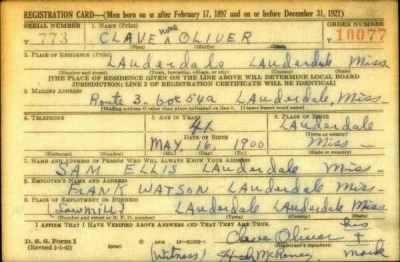 REGISTRATION CARD—(Men born on or after February 17, 1897 and on or before December 31, 1921)
SERIAL NUMBER 1. NAME (Print) ORDER NUMBER
T 773 CLAVE none OLIVER T 10077
(First) (Middle) (Last)
2. PLACE OF RESIDENCE (Print)
Lauderdale Lauderdale Miss
(Number and street) (Town, township, village, or city) (County) (State)
[THE PLACE OF RESIDENCE GIVEN ON THE LINE ABOVE WILL DETERMINE LOCAL BOARD
JURISDICTION; LINE 2 OF REGISTRATION CERTIFICATE WILL BE IDENTICAL]
3. MAILING ADDRESS
Route 3. box 54a Lauderdale, Miss.
[Mailing address if other than place indicated on line 2. If same insert word same]
4. TELEPHONE 5. AGE IN YEARS 6. PLACE OF BIRTH
Lauderdale
DATE OF BIRTH (Town or county)
MAY 16, 1900 Miss
(Exchange) (Number) (Mo.) (Day) (Yr.) (State or country)
7. NAME AND ADDRESS OF PERSON WHO WILL ALWAYS KNOW YOUR ADDRESS
SAM ELLIS Lauderdale Miss.
8. EMPLOYER'S NAME AND ADDRESS
FRANK WATSON Lauderdale Miss.
9. PLACE OF EMPLOYMENT OR BUSINESS
(Sawmill) Lauderdale Lauderdale Miss.
(Number and street or R. F. D. number) (Town) (County) (State)
I AFFIRM THAT I HAVE VERIFIED ABOVE ANSWERS AND THAT THEY ARE TRUE.
Clave Oliver his
D. S. S. Form 1 (Registrant's signature)
(Revised 1-1-42) (over) (Witness) mark